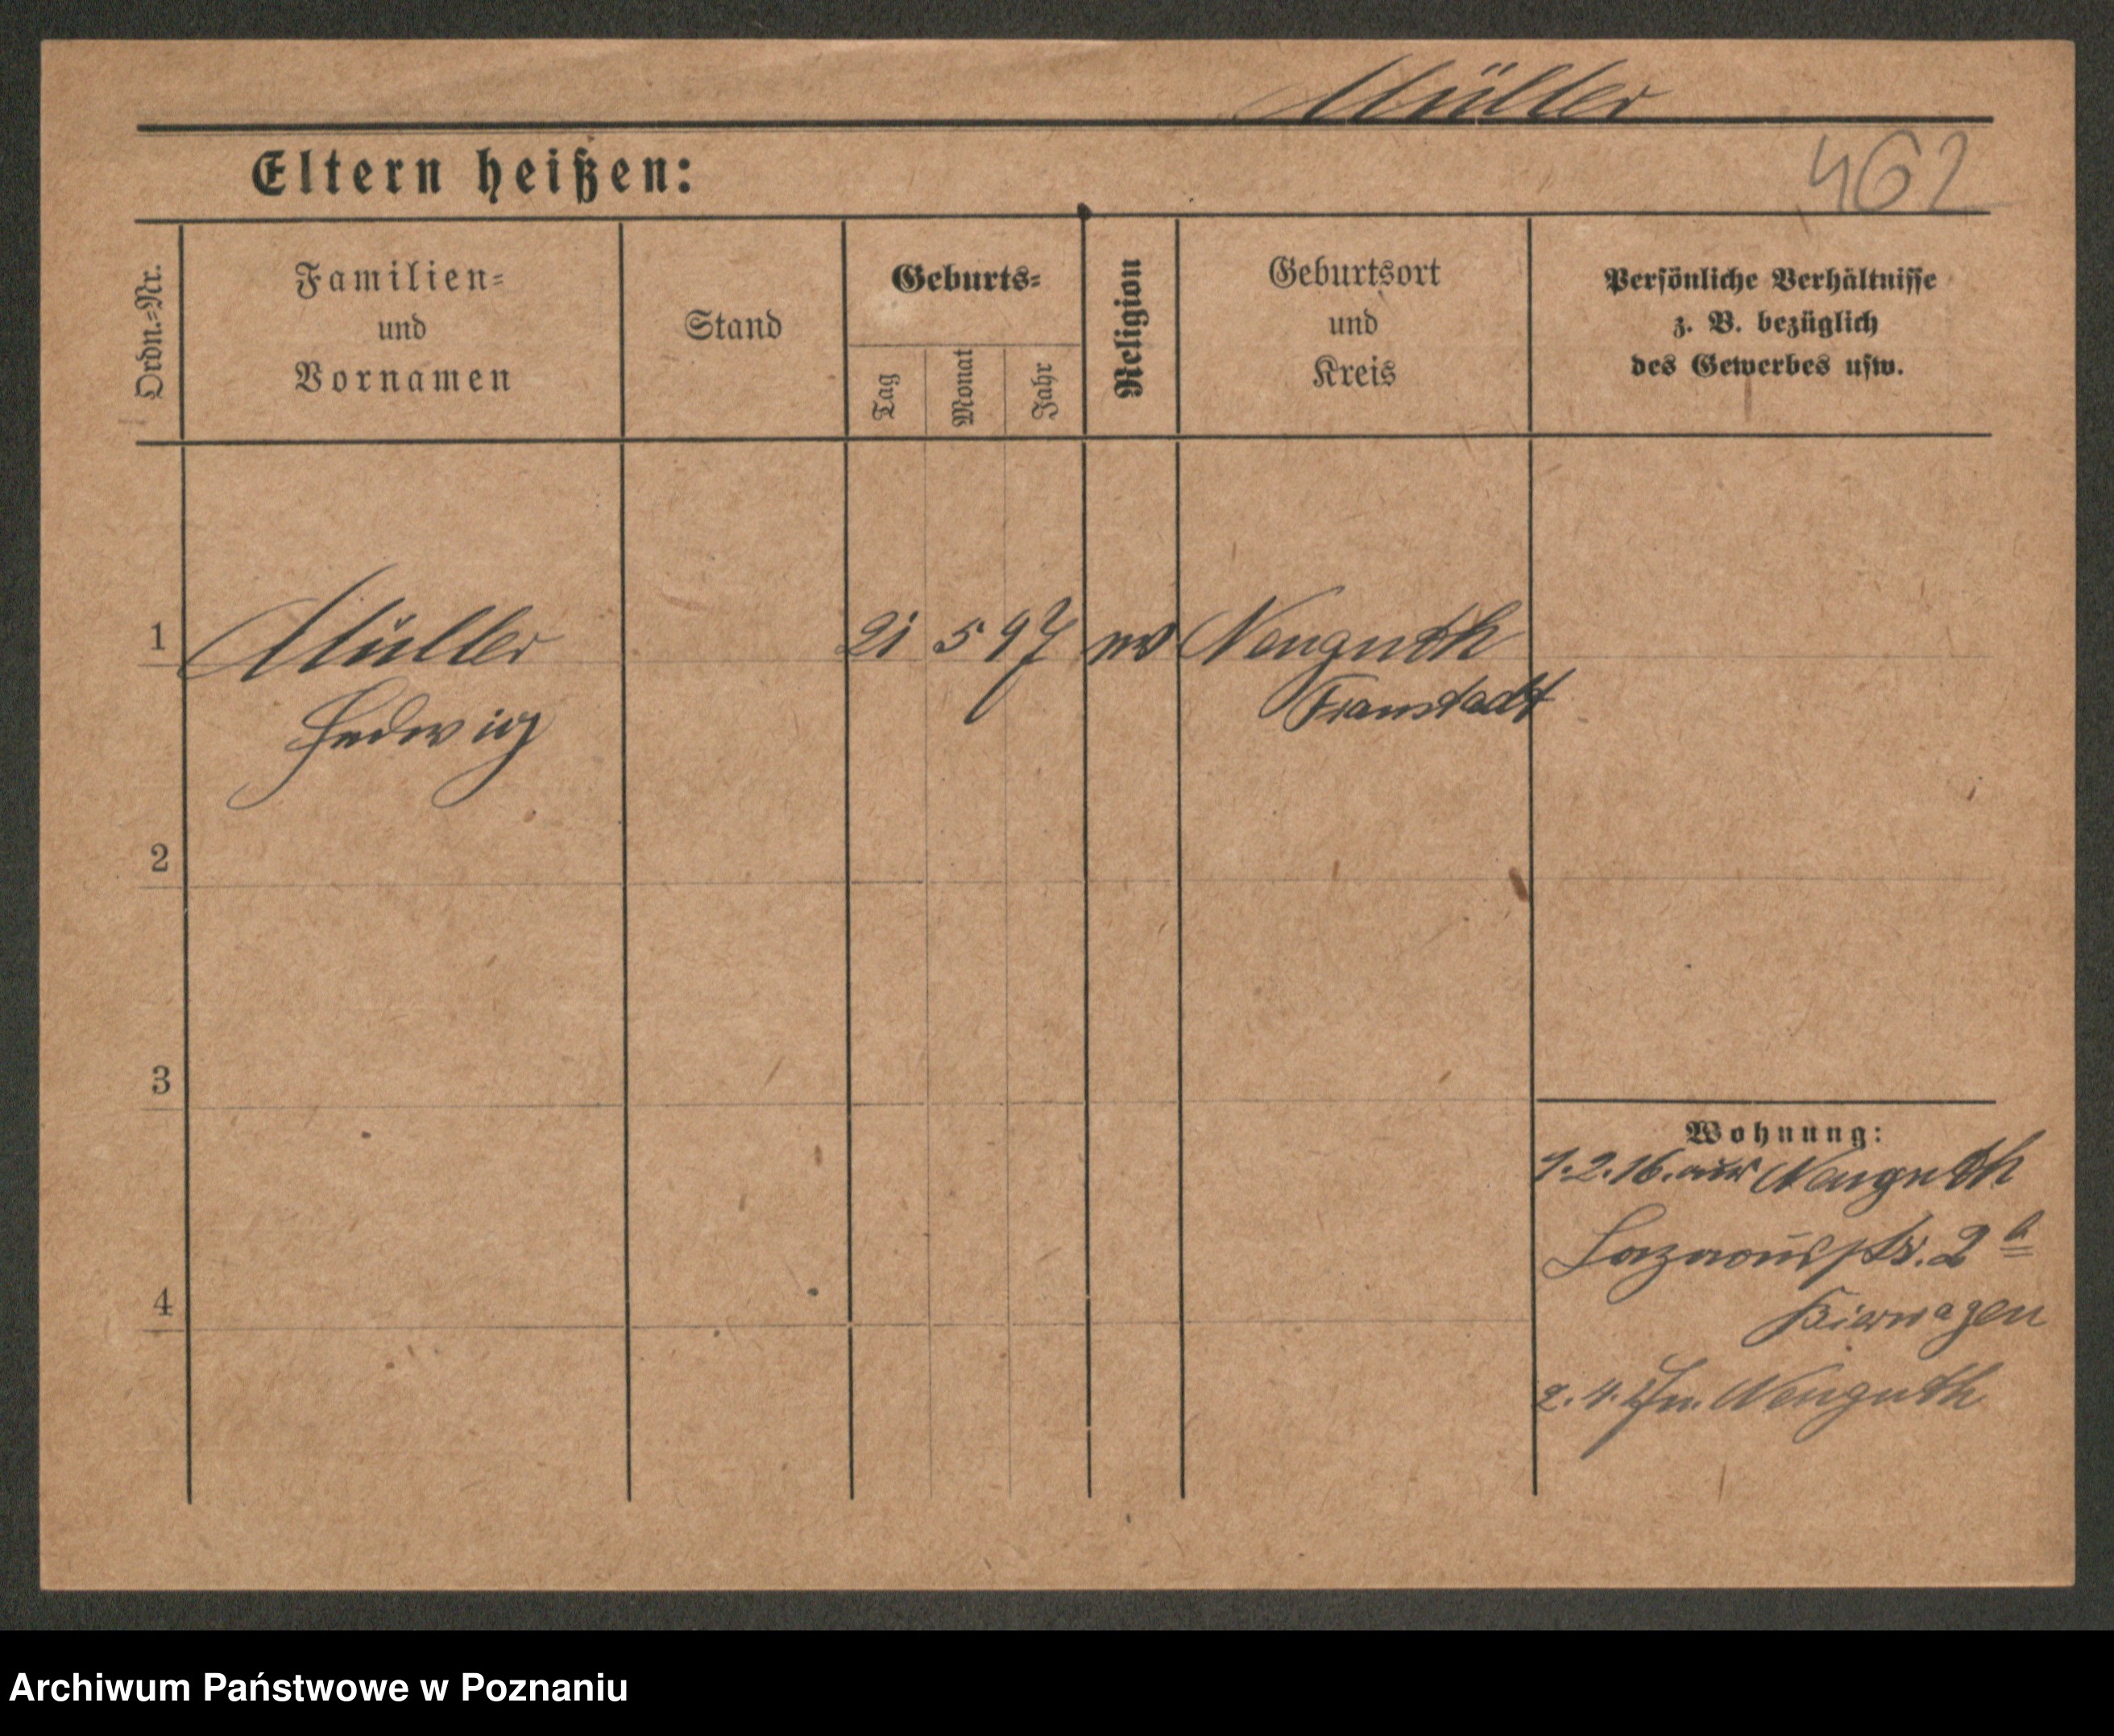 Müller
Eltern heißen:
462
Ordn.-Nr.
Familien-
und
Vornamen
Stand
Geburts-
Tag
Monat
Jahr
Religion
Geburtsort
und
Kreis
Persönliche Verhältnisse
z. B. bezüglich
des Gewerbes usw.
1 Müller 21 5 97 Neuguth
Hedwig Fraustadt
2
3
4
Wohnung:
1.2.16. aus Neuguth
Lazarusstr. 2
Bierwagen
2.4. n. Neuguth
Archiwum Państwowe w Poznaniu